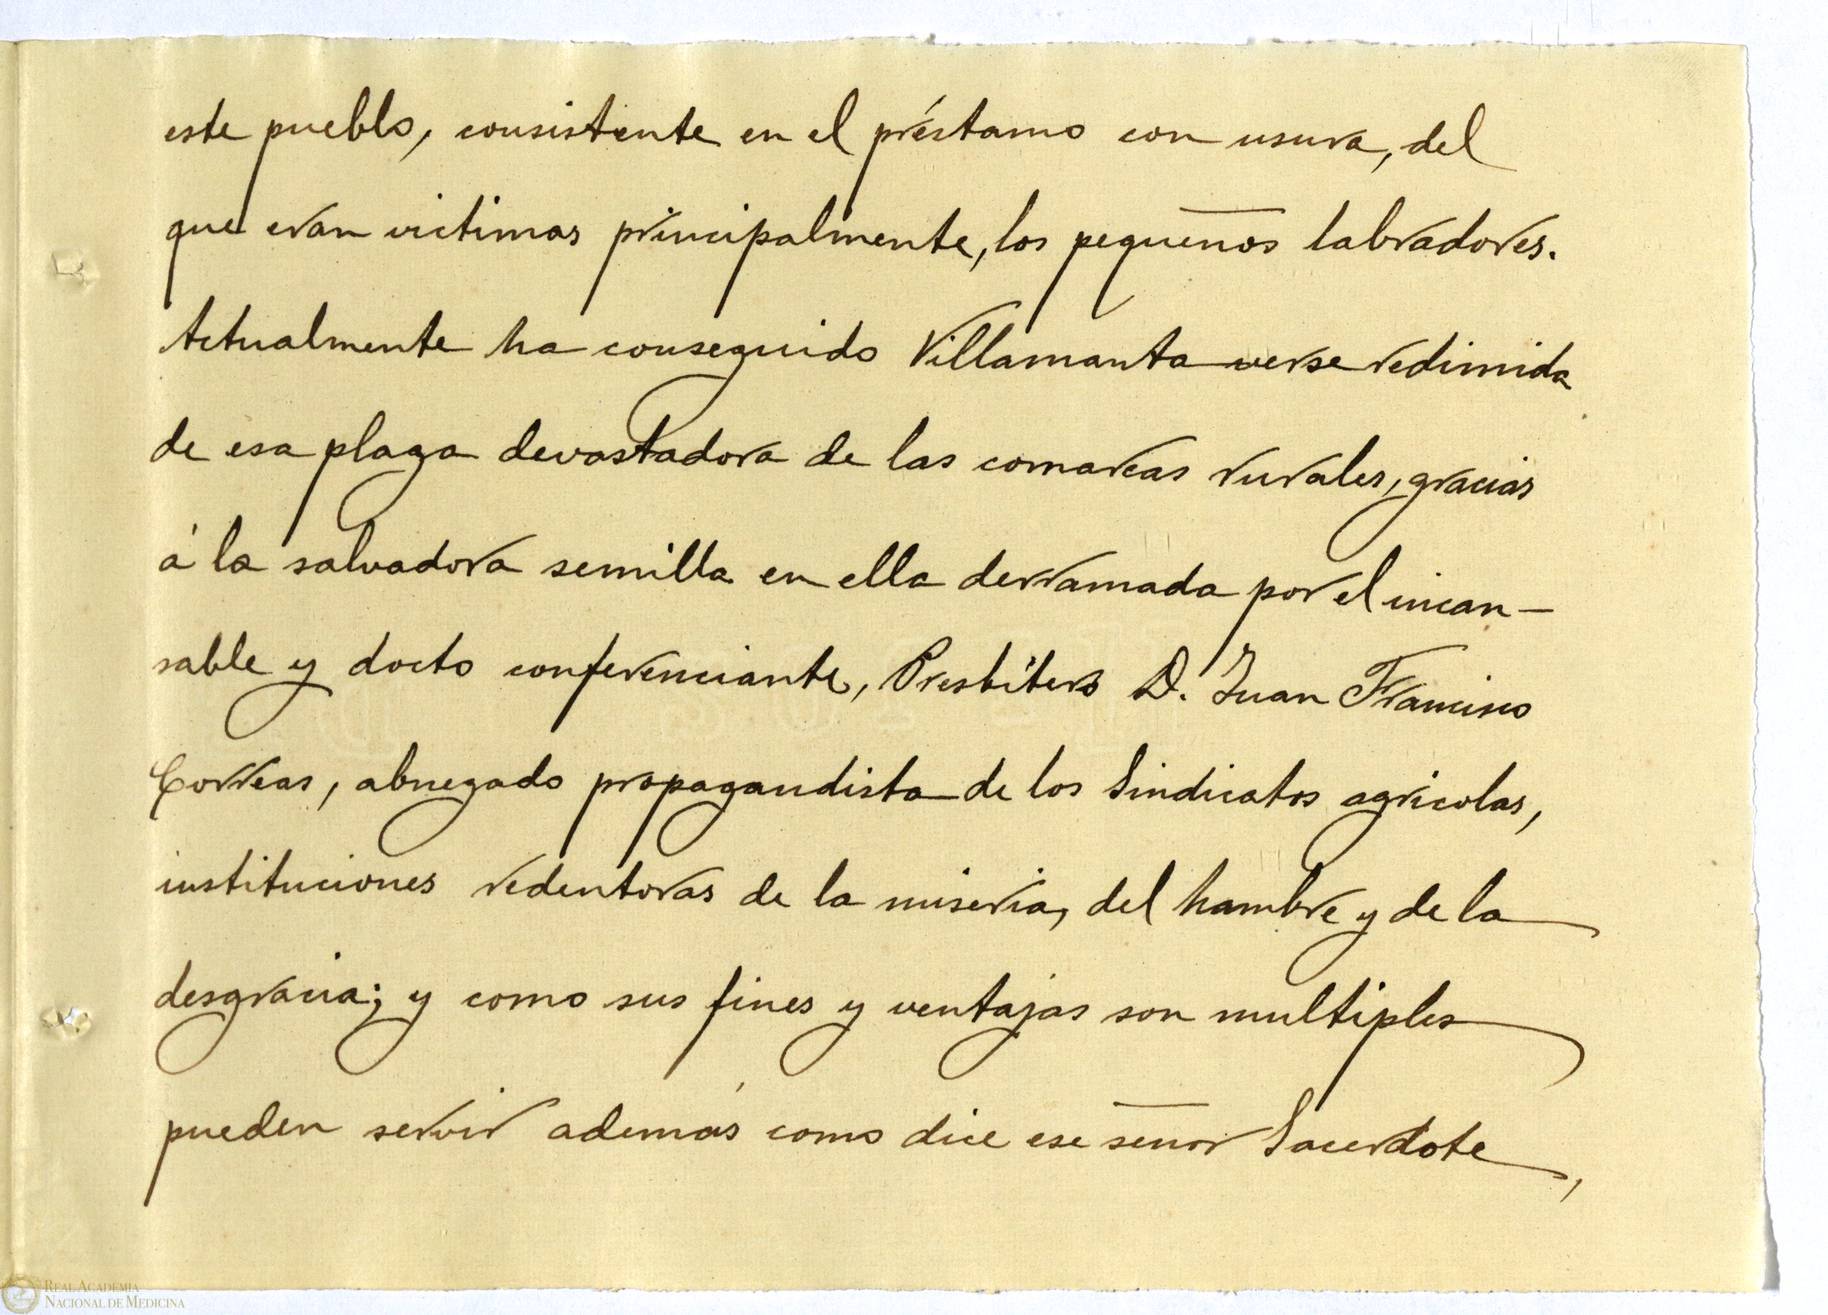 este pueblo, consistente en el préstamo con usura, del
que eran victimas principalmente, los pequeños labradores.
Actualmente ha conseguido Villamanta verse redimida
de esa plaga devastadora de las comarcas rurales, gracias
á la salvadora semilla en ella derramada por el incan-
sable y docto conferenciante, Presbítero D. Juan Francisco
Correas, abnegado propagandista de los Sindicatos agricolas,
instituciones redentoras de la miseria, del hambre y de la
desgracia; y como sus fines y ventajas son multiples
pueden servir además como dice ese señor Sacerdote,
REAL ACADEMIA
NACIONAL DE MEDICINA